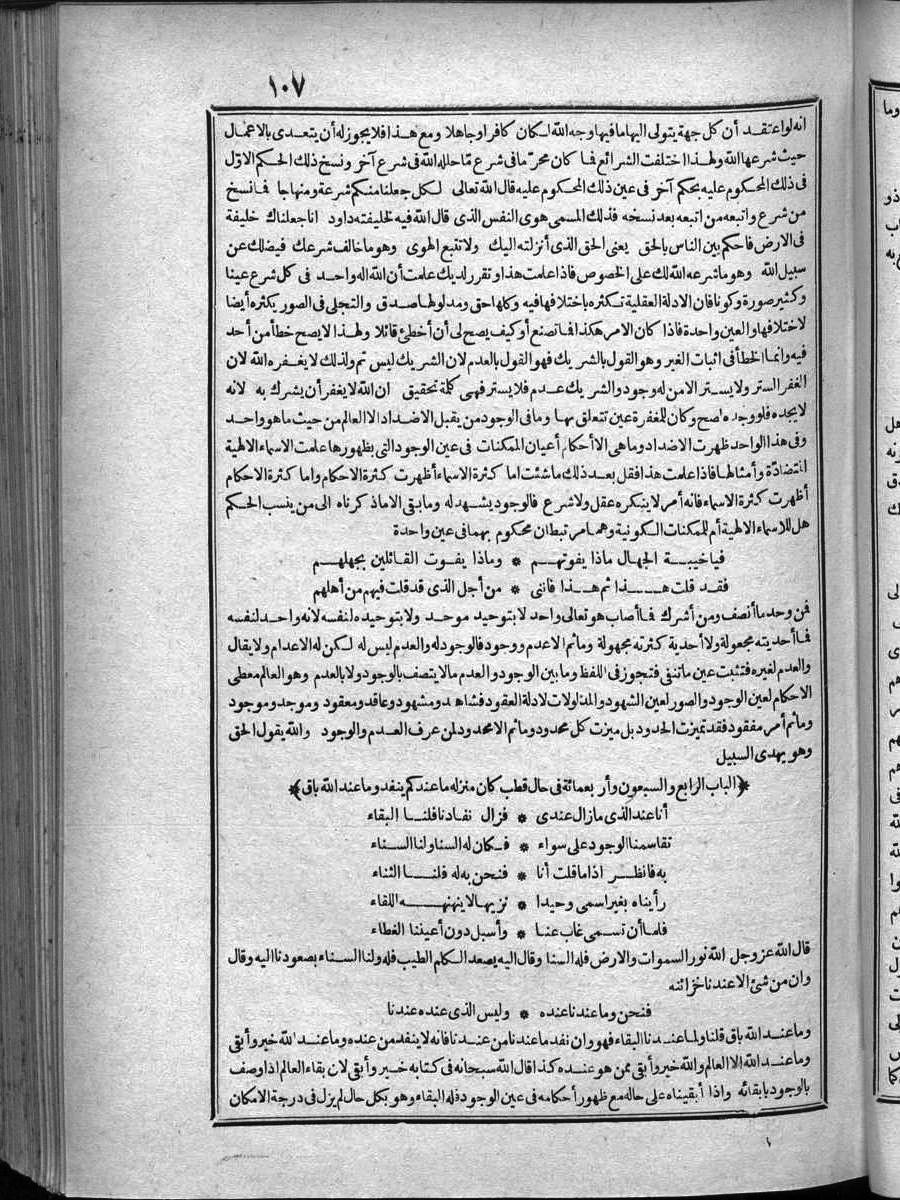 ١٠٧
انه لو اعتقد أن كل جهة يتولى اليها ما فيها وجه الله لكان كافرا أو جاهلا ومع هذا فلا يجوز له أن يتعدى بالاعمال
حيث شرعها الله ولهذا اختلفت الشرائع فما كان محرّما فى شرع مّا حلله الله فى شرع آخر ونسخ ذلك الحكم الاوّل
فى ذلك المحكوم عليه بحكم آخر فى عين ذلك المحكوم عليه قال الله تعالى لكل جعلنا منكم شرعة ومنهاجا فما نسخ
من شرع واتبعه من اتبعه بعد نسخه فذلك المسمى هوى النفس الذى قال الله فيه لخليفته داود انا جعلناك خليفة
فى الارض فاحكم بين الناس بالحق يعنى الحق الذى أنزلته اليك ولا تتبع الهوى وهو ما خالف شرعك فيضلك عن
سبيل الله وهو ما شرعه الله لك على الخصوص فاذا علمت هذا وتقرر لديك علمت أن الله اله واحد فى كل شرع عينا
وكثير صورة وكونا فان الادلة العقلية تكثره باختلافها فيه وكلها حق ومدلولها صدق والتجلى فى الصور يكثره أيضا
لاختلافها والعين واحدة فاذا كان الامر هكذا فما تصنع أو كيف يصح لى أن أخطئ قائلا ولهذا لا يصح خطأ من أحد
فيه وانما الخطأ فى اثبات الغير وهو القول بالشريك فهو القول بالعدم لان الشريك ليس ثم ولذلك لا يغفره الله لان
الغفر الستر ولا يستر الا من له وجود والشريك عدم فلا يستر فهى كلمة تحقيق ان الله لا يغفر أن يشرك به لانه
لا يجده فلو وجده لصح وكان للمغفرة عين تتعلق بها وما فى الوجود من يقبل الاضداد الا العالم من حيث ما هو واحد
وفى هذا الواحد ظهرت الاضداد وما هى الا أحكام أعيان الممكنات فى عين الوجود التى بظهورها علمت الاسماء الالهية
المتضادّة وأمثالها فاذا علمت هذا فقل بعد ذلك ما شئت اما كثرة الاسماء أظهرت كثرة الاحكام واما كثرة الاحكام
أظهرت كثرة الاسماء فانه أمر لا ينكره عقل ولا شرع فالوجود يشهد له وما بقى الا ما ذكرناه الى من ينسب الحكم
هل للاسماء الالهية أم للممكنات الكونية وهما مرتبطان محكوم بهما فى عين واحدة
فيا خيبة الجهال ماذا يفوتهم * وماذا يفوت القائلين بجهلهم
فقد قلت هذا ثم هذا فاننى * من أجل الذى قد قلت فيهم من أهلهم
فمن وحد ما أنصف ومن أشرك فما أصاب هو تعالى واحد لا بتوحيد موحد ولا بتوحيده لنفسه لانه واحد لنفسه
فما أحديته مجعولة ولا أحدية كثرته مجهولة وما ثم الا عدم ووجود فالوجود له والعدم ليس له لكن له الاعدام ولا يقال
والعدم لغيره فتثبت عين ما تنفى فتجوز فى اللفظ وما بين الوجود والعدم ما لا يتصف بالوجود ولا بالعدم وهو العالم معطى
الاحكام لعين الوجود والصور لعين الشهود والمدلولات لادلة العقود فشاهد ومشهود وعاقد ومعقود وموجد وموجود
وما ثم أمر مفقود فقد تميزت الحدود بل ميزت كل محدود وما ثم الا محدود لمن عرف العدم والوجود والله يقول الحق
وهو يهدى السبيل
﴿الباب الرابع والسبعون وأربعمائة فى حال قطب كان منزله ما عندكم ينفد وما عند الله باق﴾
أنا عند الذى ما زال عندى * فزال نفادنا فلنا البقاء
تقاسمنا الوجود على سواء * فكان له السنا ولنا السناء
به فانظر اذا ما قلت أنا * فنحن به له فلنا الثناء
رأيناه بغير اسمى وحيدا * نزيها لا ينهنهه اللقاء
فلما أن تسمى غاب عنا * وأسبل دون أعيننا الغطاء
قال الله عز وجل الله نور السموات والارض فله السنا وقال اليه يصعد الكلم الطيب فله ولنا السناء بصعودنا اليه وقال
وان من شئ الا عندنا خزائنه
فنحن وما عندنا عنده * وليس الذى عنده عندنا
وما عند الله باق قلنا ولما عندنا البقاء فهو وان نفد ما عندنا من عندنا فانه لا ينفد من عنده وما عند الله خير وأبقى
وما عند الله الا العالم والله خير وأبقى ممن هو عنده كذا قال الله سبحانه فى كتابه خير وأبقى لان بقاء العالم اذا وصف
بالوجود بابقائه واذا أبقيناه على حاله مع ظهور أحكامه فى عين الوجود فله البقاء وهو بكل حال لم يزل فى درجة الامكان